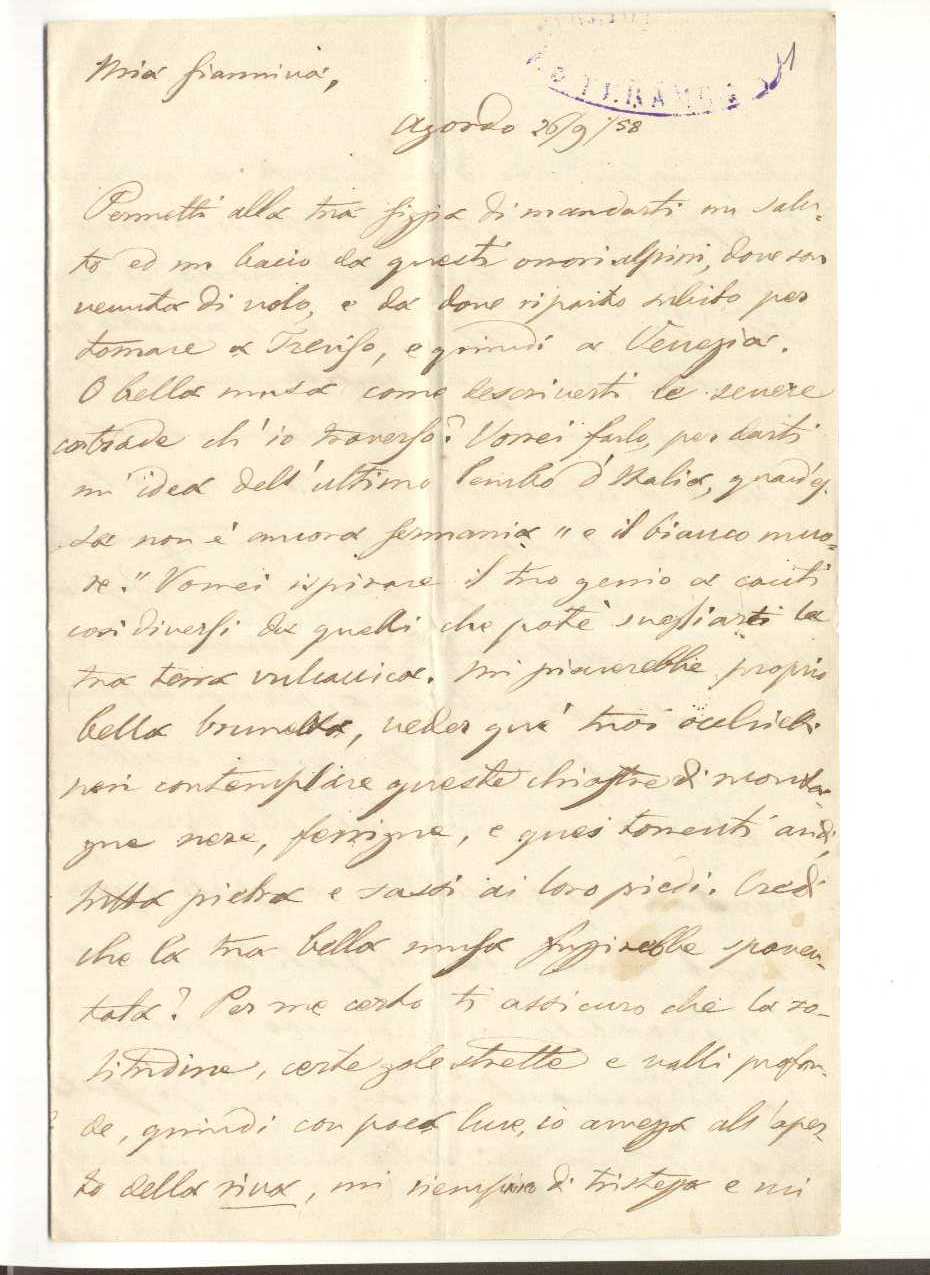 Mia Giannina,
TERAMO
Agordo 26/9/58
Permetti alla tua Gigia di mandarti un salu-
to ed un bacio da questi orrori alpini, dove son
venuta di volo, e da dove riparto subito per
tornare a Treviso, e quindi a Venezia.
O bella musa come descriverti le severe
contrade ch'io traverso? Vorrei farlo, per darti
un'idea dell'ultimo lembo d'Italia, quand'es-
sa non è ancora Germania "e il bianco muo-
re." Vorrei ispirare il tuo genio a canti
così diversi da quelli che potè svegliarti la
tua terra vulcanica. Mi piacerebbe proprio
bella brunetta, veder que' tuoi occhietti
neri contemplare queste chiostre di monta-
gne nere, ferrigne, e quei torrenti aridi,
tutta pietra e sassi ai loro piedi. Credi
che la tua bella musa fuggirebbe spaven-
tata? Per me certo ti assicuro che la so-
litudine, certe gole strette e valli profon-
de, quindi con poca luce, io avvezza all'aper-
to della riva, mi riempiono di tristezza e mi